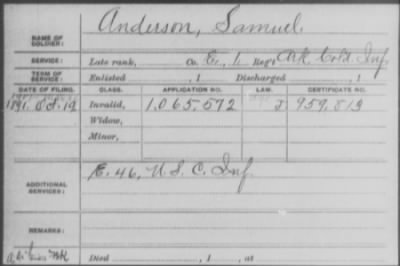 Anderson, Samuel
NAME OF SOLDIER:
SERVICE: Late rank, Co. E, 1 Reg't Ark Cold. Inf.
TERM OF SERVICE: Enlisted , 1 Discharged , 1
DATE OF FILING. CLASS. APPLICATION NO. LAW. CERTIFICATE NO.
1891 Invalid, 1,065,572 959,813
Widow,
Minor,
ADDITIONAL SERVICES: E. 46, U.S.C. Inf.
REMARKS:
Died , 1 , at